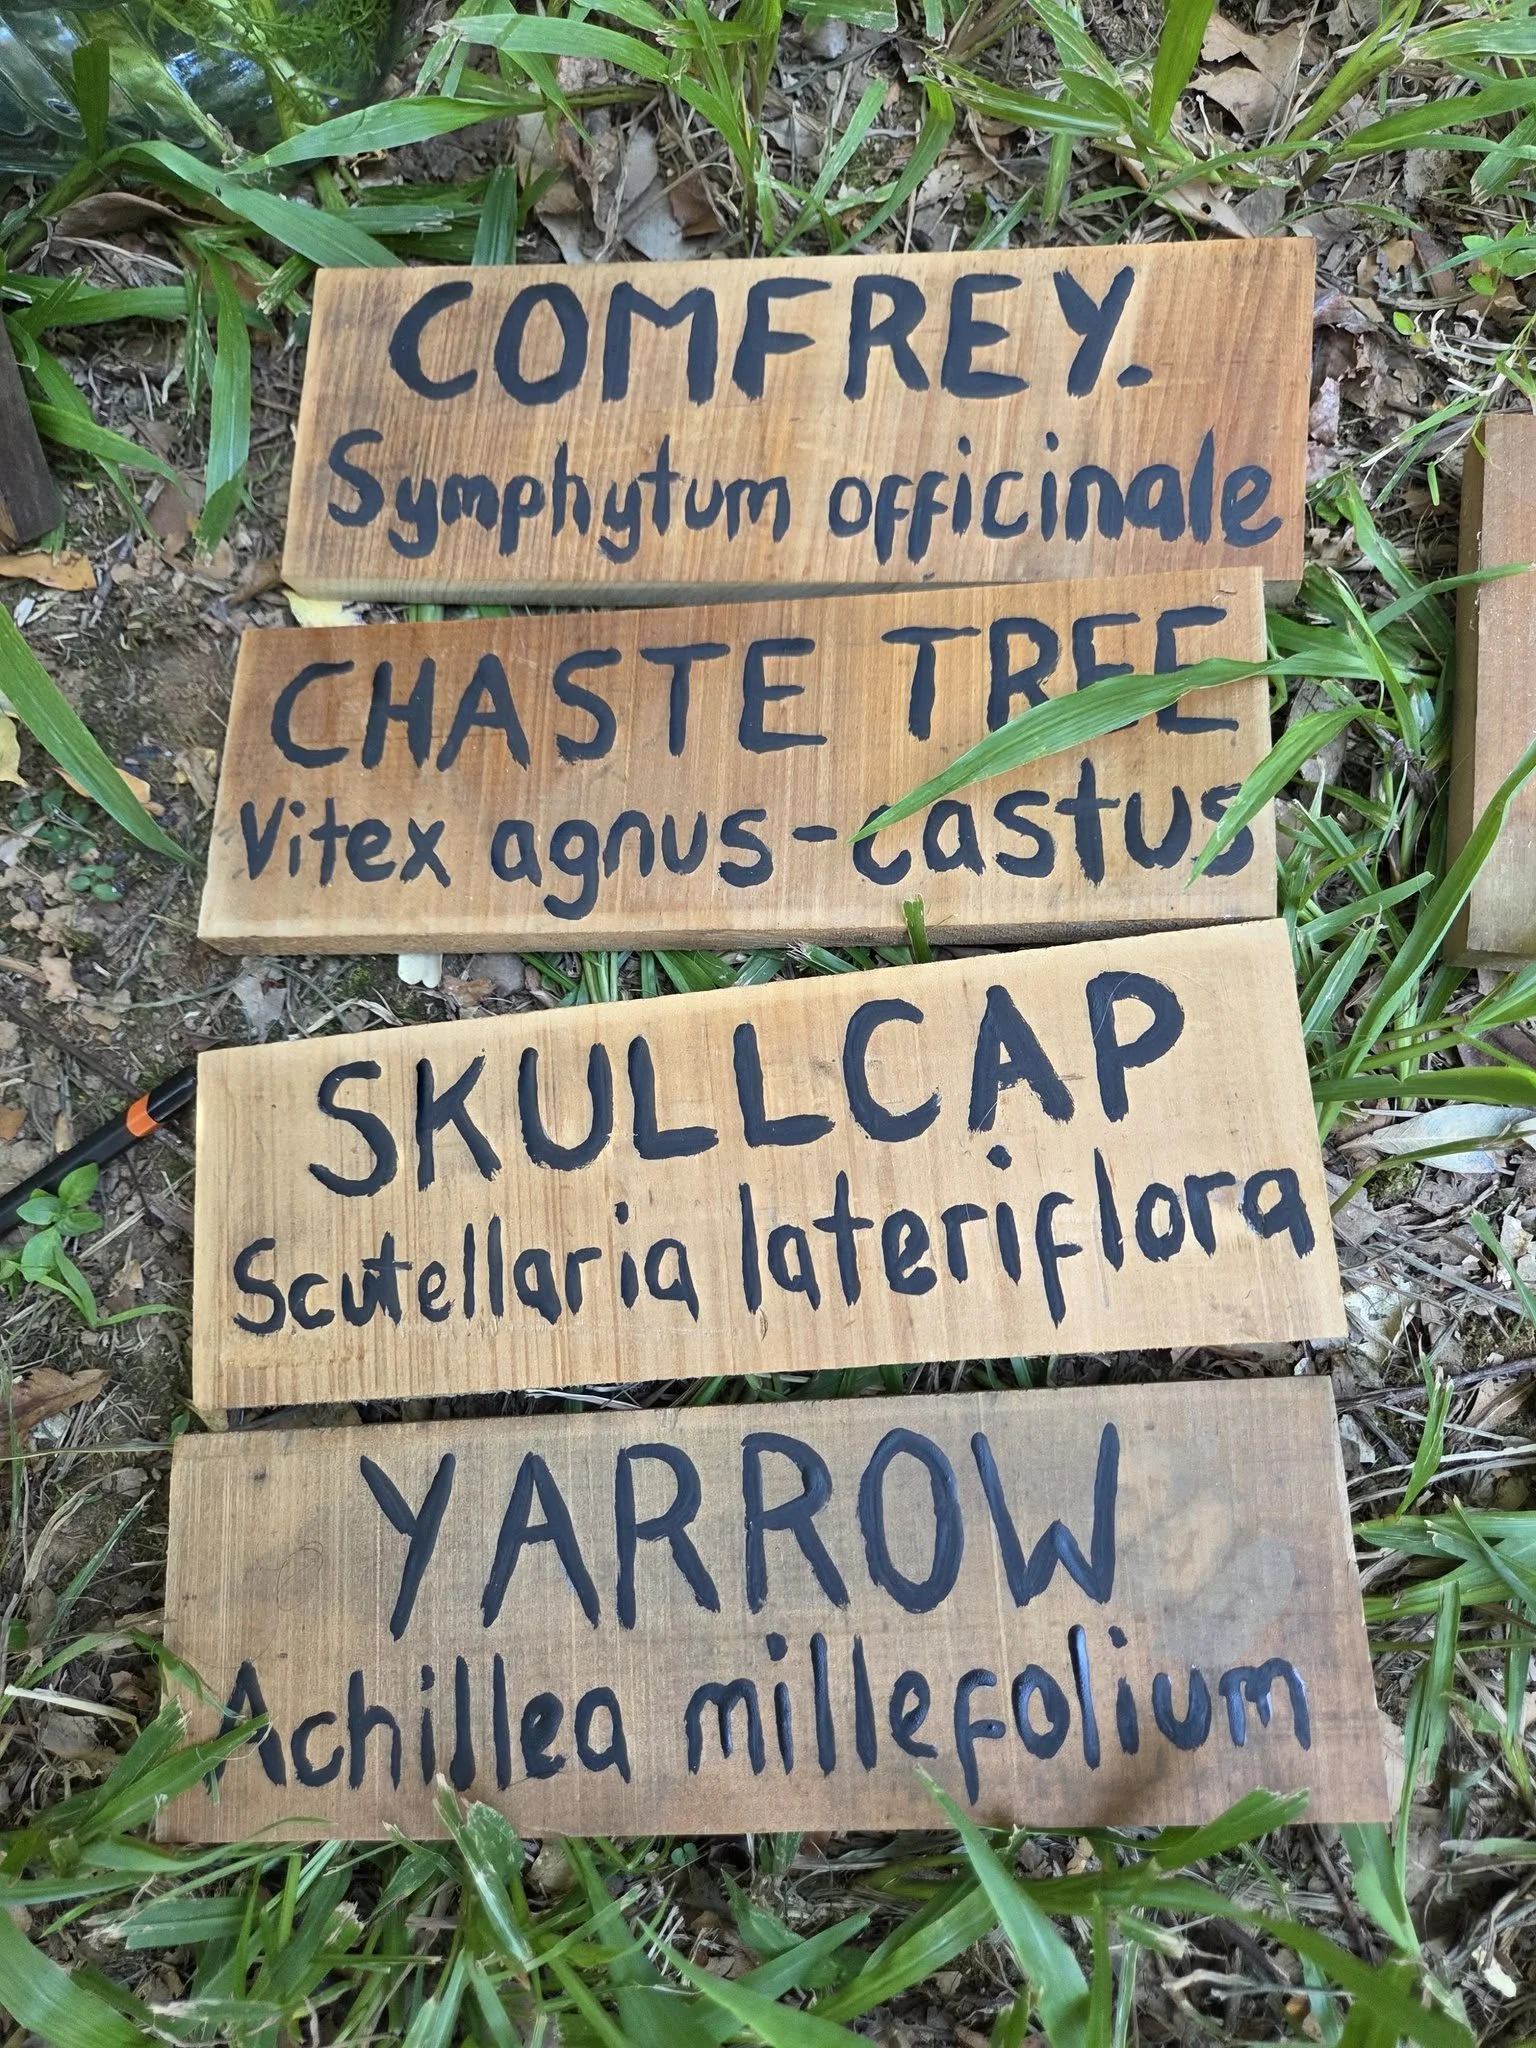 COMFREY.
Symphytum officinale
CHASTE TREE
Vitex agnus-castus
SKULLCAP
Scutellaria lateriflora
YARROW
Achillea millefolium